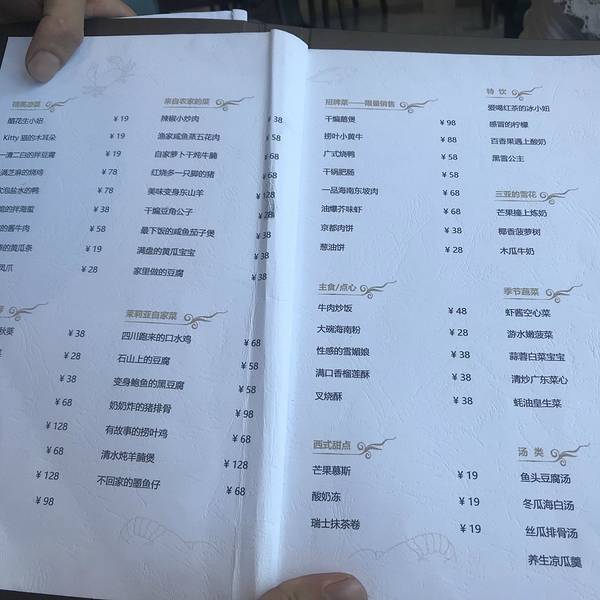 精美凉菜
醋花生小姐 ¥19
Kitty 猫的木耳朵 ¥19
一清二白的拌豆腐 ¥19
满芝麻的烧鸡 ¥78
泡盐水的鸭 ¥78
的拌海蜇 ¥38
的酱牛肉 ¥58
的黄瓜条 ¥19
凤爪 ¥28
秋葵 ¥38
¥28
¥38
¥68
¥128
¥68
¥128
¥98
来自农家的菜
辣椒小炒肉 ¥38
渔家咸鱼蒸五花肉 ¥58
自家萝卜干炖牛腩 ¥58
红烧多一只脚的猪
美味变身东山羊
干煸豆角公子 ¥28
最下饭的咸鱼茄子煲
满盘的黄瓜宝宝
家里做的豆腐 ¥38
茉莉亚自家菜
四川跑来的口水鸡 ¥68
石山上的豆腐 ¥58
变身鲍鱼的黑豆腐 ¥58
奶奶炸的猪排骨 ¥98
有故事的捞叶鸡 ¥68
清水炖羊腩煲 ¥128
不回家的墨鱼仔 ¥68
招牌菜——限量销售
干煸鹅煲 ¥98
捞叶小黄牛 ¥88
广式烧鸭 ¥58
干锅肥肠 ¥58
一品海南东坡肉 ¥68
油爆芥味虾 ¥68
京都肉饼 ¥38
葱油饼 ¥28
主食/点心
牛肉炒饭 ¥48
大碗海南粉 ¥28
性感的雪媚娘 ¥38
满口香榴莲酥 ¥38
叉烧酥 ¥38
西式甜点
芒果慕斯 ¥19
酸奶冻 ¥19
瑞士抹茶卷 ¥19
特饮
爱喝红茶的冰小妞
感冒的柠檬
百香果遇上酸奶
黑雪公主
三亚的雪花
芒果撞上炼奶
椰香菠萝树
木瓜牛奶
季节蔬菜
虾酱空心菜
游水嫩菠菜
蒜蓉白菜宝宝
清炒广东菜心
蚝油皇生菜
汤类
鱼头豆腐汤
冬瓜海白汤
丝瓜排骨汤
养生凉瓜羹